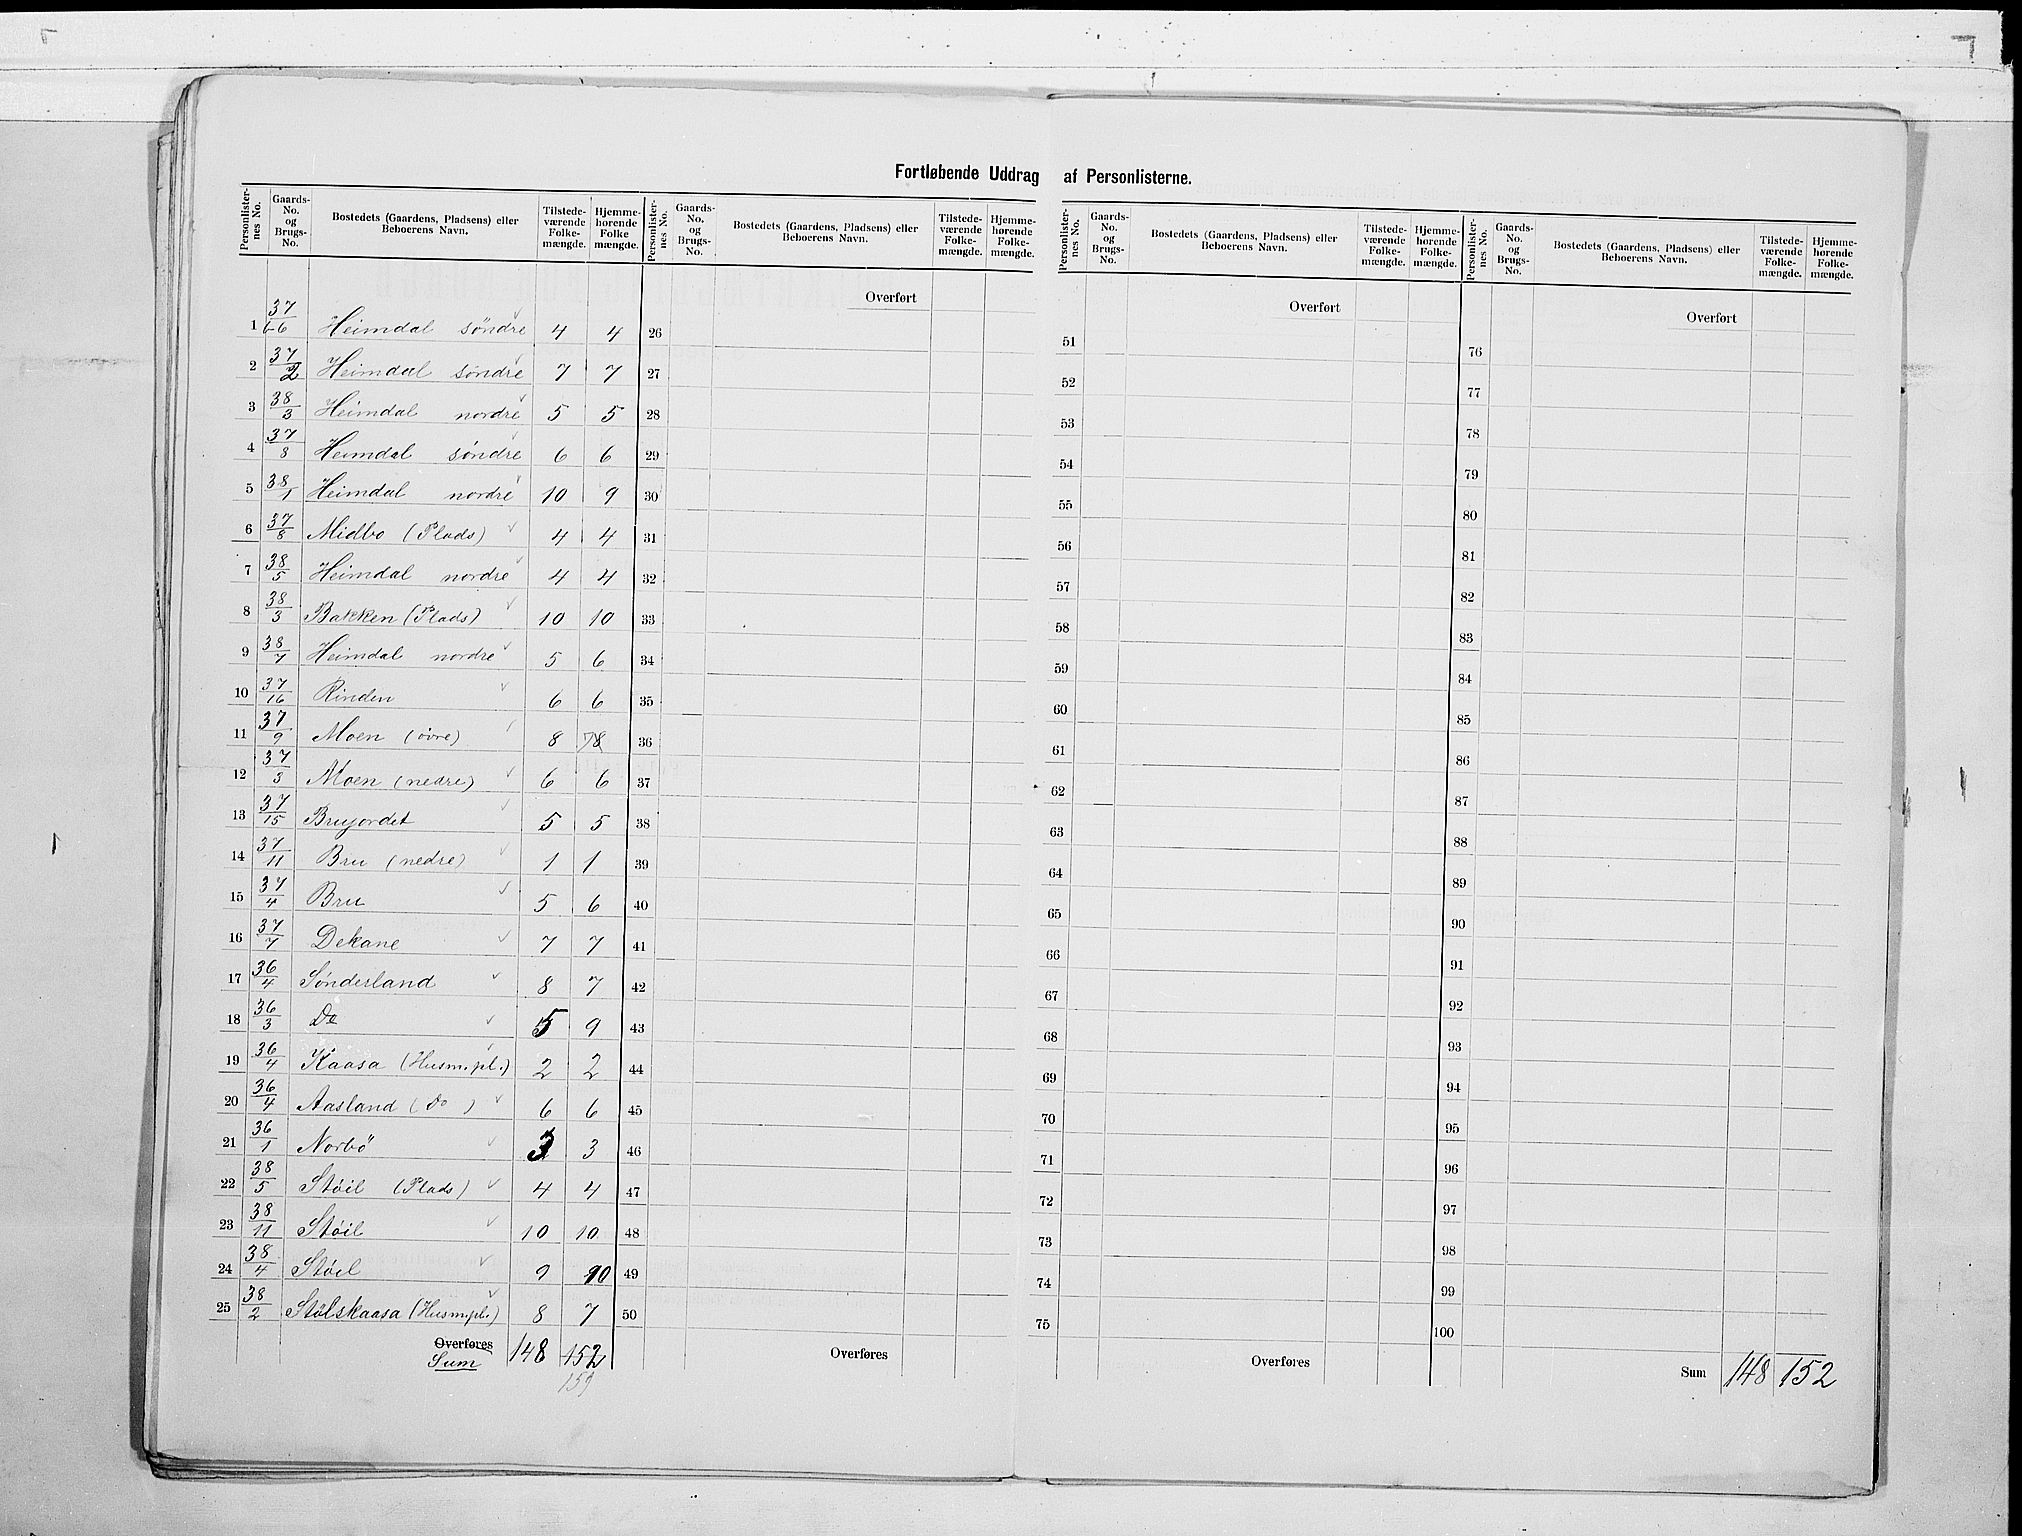 Fortløbende Uddrag af Personlisterne.
Personlister-nes No. | Gaards-No. og Brugs-No. | Bostedets (Gaardens, Pladsens) eller Beboerens Navn. | Tilstede-værende Folke-mængde. | Hjemme-hørende Folke mængde.
Personlister-nes No. | Gaards-No. og Brugs-No. | Bostedets (Gaardens, Pladsens) eller Beboerens Navn. | Tilstede-værende Folke-mængde. | Hjemme-hørende Folke-mængde.
Personlister-nes No. | Gaards-No. og Brugs-No. | Bostedets (Gaardens, Pladsens) eller Beboerens Navn. | Tilstede-værende Folke-mængde. | Hjemme-hørende Folke-mængde.
Personlister-nes No. | Gaards-No. og Brugs-No. | Bostedets (Gaardens, Pladsens) eller Beboerens Navn. | Tilstede-værende Folke-mængde. | Hjemme-hørende Folke-mængde.
Overført Overført Overført
1 37/6 Heimdal söndre 4 4 26 51 76
2 37/2 Heimdal söndre 7 7 27 52 77
3 38/3 Heimdal nordre 5 5 28 53 78
4 37/8 Heimdal söndre 6 6 29 54 79
5 38/1 Heimdal nordre 10 9 30 55 80
6 37/8 Midbo (Plads) 4 4 31 56 81
7 38/5 Heimdal nordre 4 4 32 57 82
8 38/3 Bakken (Plads) 10 10 33 58 83
9 38/7 Heimdal nordre 5 6 34 59 84
10 37/16 Rinden 6 6 35 60 85
11 37/9 Moen (övre) 8 78 36 61 86
12 37/3 Moen (nedre) 6 6 37 62 87
13 37/15 Brujordet 5 5 38 63 88
14 37/11 Bru (nedre) 1 1 39 64 89
15 37/4 Bru 5 6 40 65 90
16 37/7 Dekane 7 7 41 66 91
17 36/4 Sønderland 8 7 42 67 92
18 36/3 Do 5 9 43 68 93
19 36/4 Kaasa (Husm.pl.) 2 2 44 69 94
20 36/4 Aasland (Do) 6 6 45 70 95
21 36/1 Norbö 3 3 46 71 96
22 38/5 Støil (Plads) 4 4 47 72 97
23 38/11 Støil 10 10 48 73 98
24 38/4 Støil 9 10 49 74 99
25 38/2 Stölskaasa (Husm.pl.) 8 7 50 75 100
Overføres 148 152 Overføres Overføres Sum 148 152
Sum
159